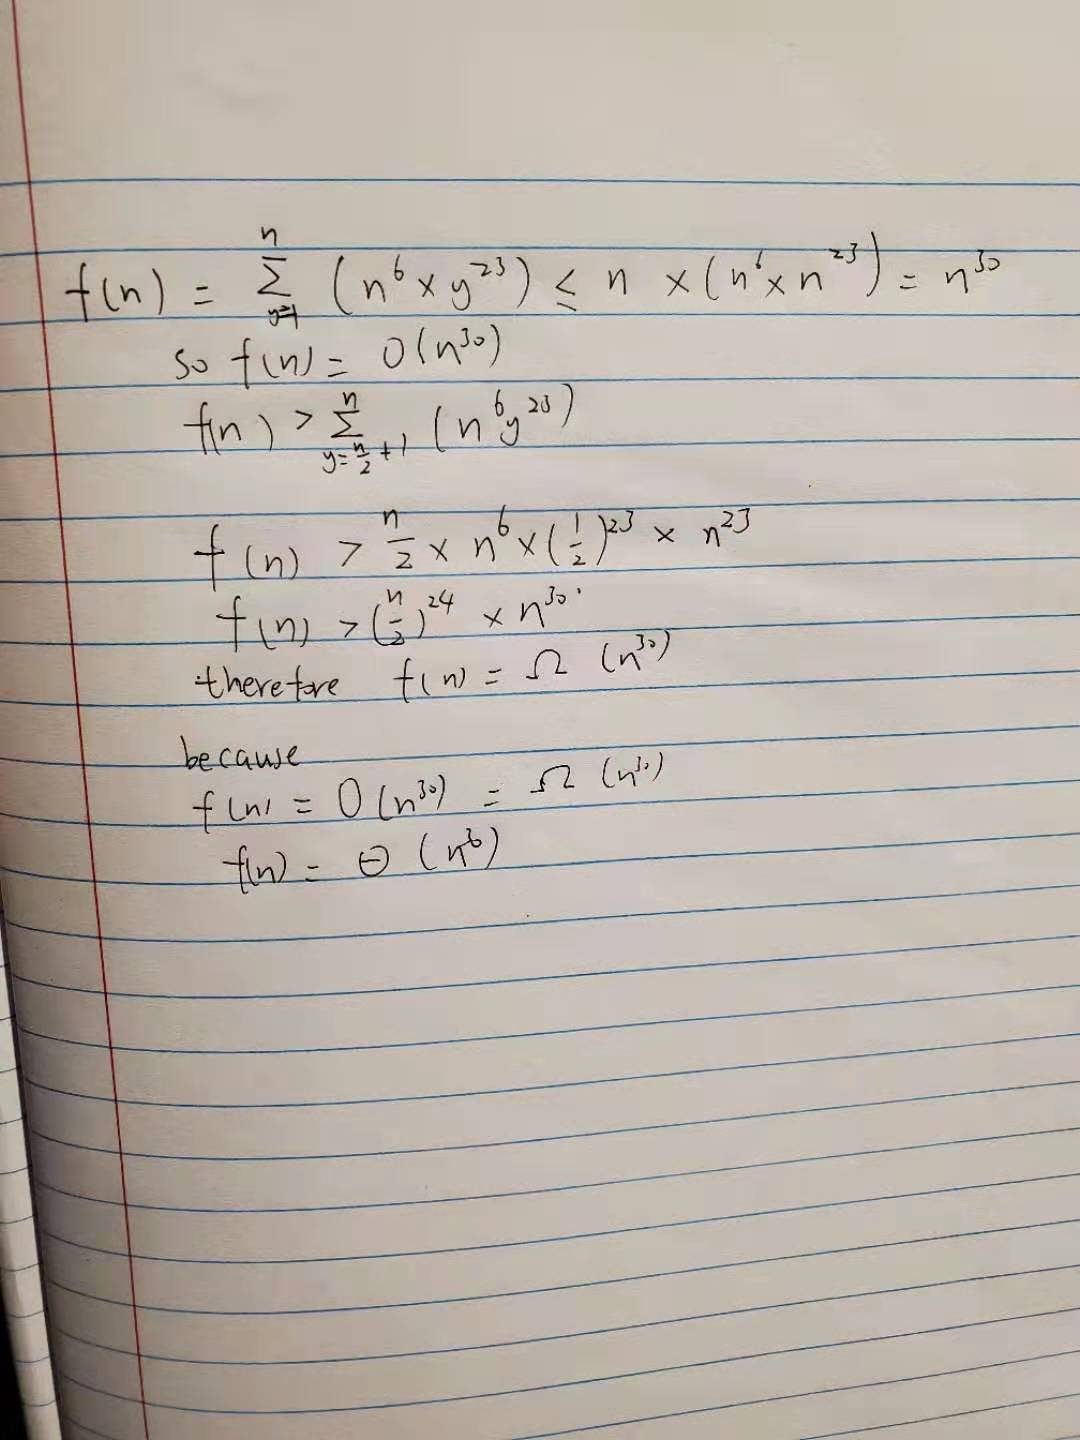 f(n) = n Σ y=1 (n⁶ × y²³) ≤ n × (n⁶ × n²³) = n³⁰
so f(n) = O(n³⁰)
f(n) > n Σ y=n/2+1 (n⁶y²³)
f(n) > n/2 × n⁶ × (1/2)²³ × n²³
f(n) > (n/2)²⁴ × n³⁰
therefore f(n) = Ω (n³⁰)
because
f(n) = O(n³⁰) = Ω (n³⁰)
f(n) = Θ (n³⁰)